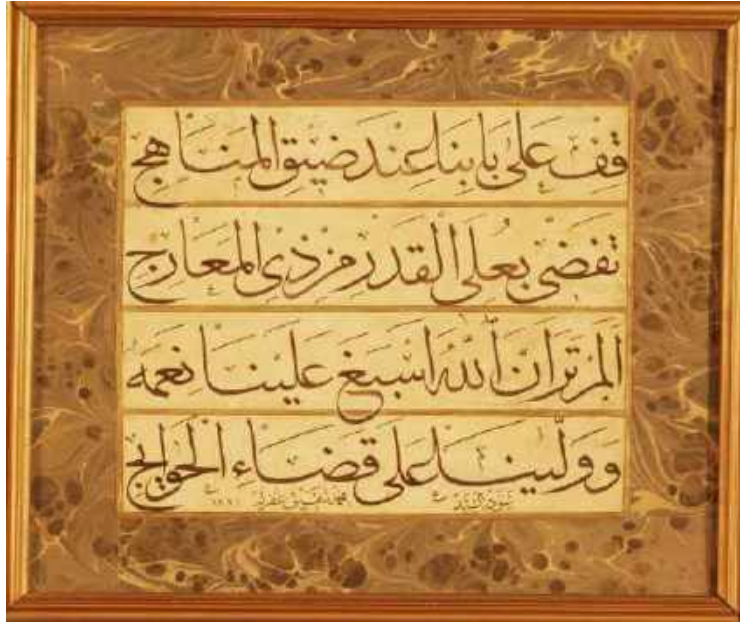 قِفْ عَلَى بَابِنَا عِنْدَ ضِيقِ الْمَنَاهِجِ
تفضى بعلى القدر من ذى المعارج
ألم تر أن الله اسبغ علينا نعمه
وولينا على قضاء الحوايج
سوده السيد محمد غفر له